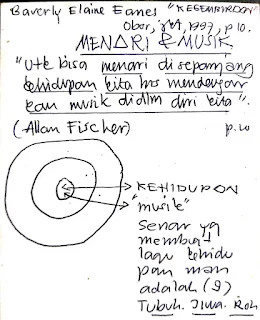 Beverly Elaine Eanes "KEGEMBIRAAN"
Obor, Jkt, 1997, p 10.
MENARI & MUSIK
"Utk bisa menari di sepanjang
kehidupan kita hrs mendengar
kan musik didlm diri kita".
(Allan Fischer) p.20
KEHIDUPAN
"musik"
Senar yg
membuat
lagu kehidu
pan man
adalah (3)
Tubuh. Jiwa. Roh